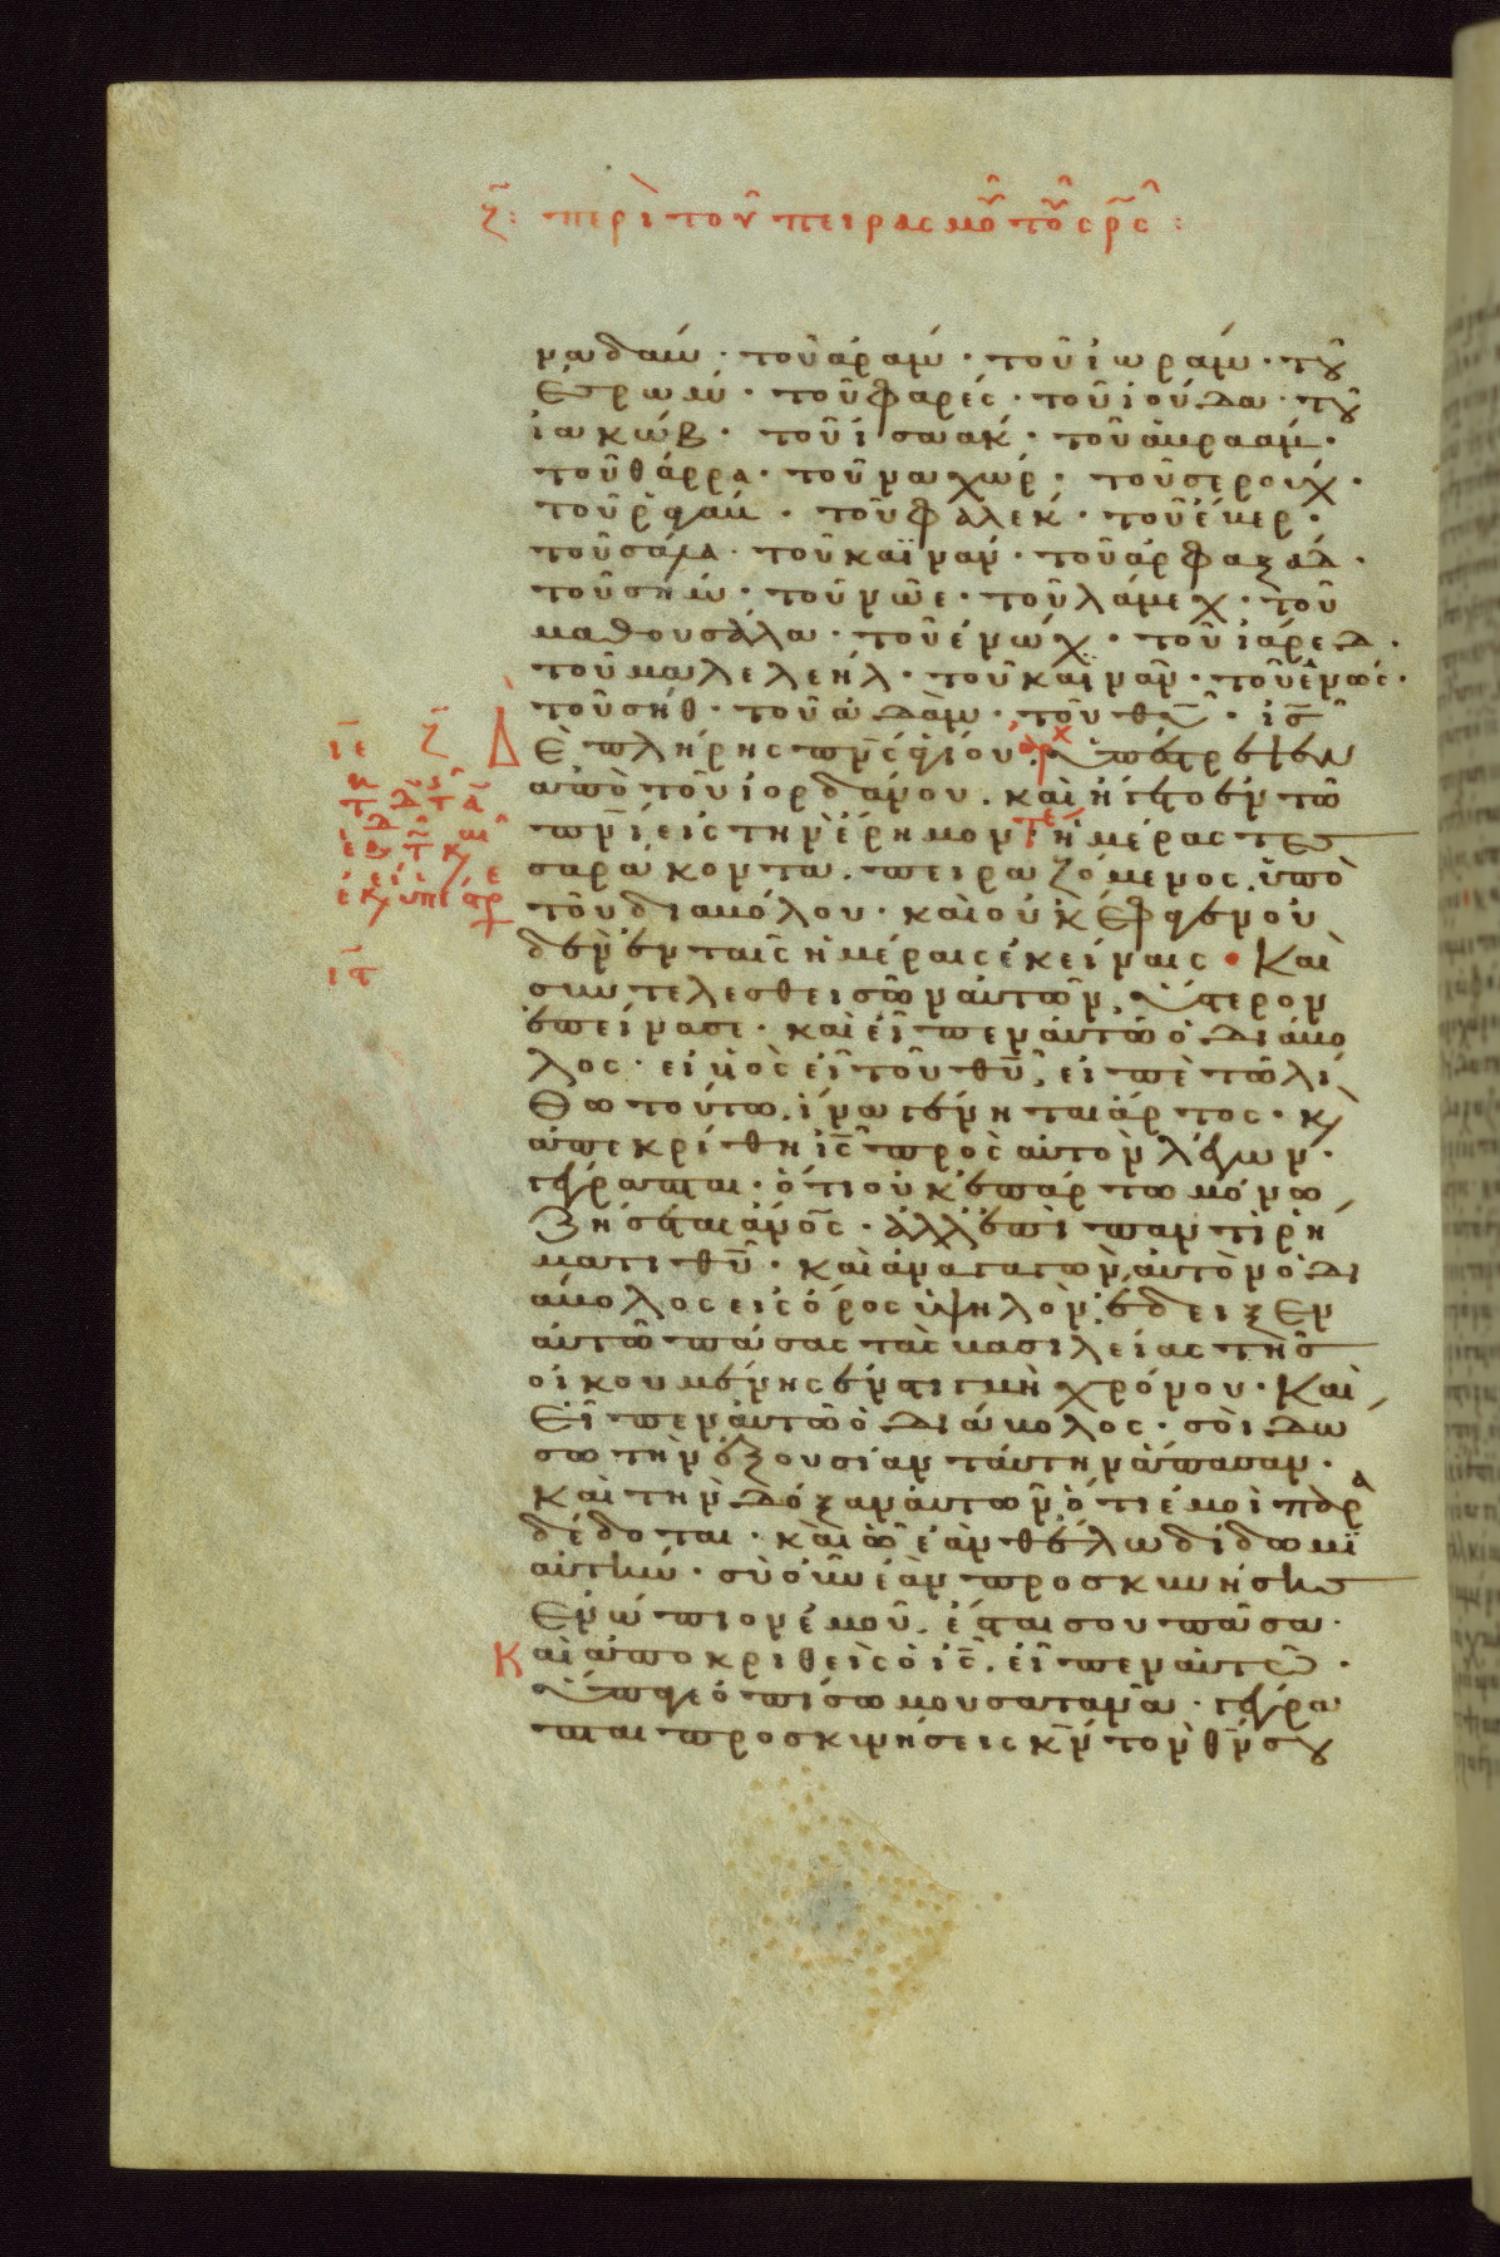 ζ̄: περὶ τοῦ πειρασμοῦ τοῦ σρ̄ς:
ναδαάμ· τοῦ ἀράμ· τοῦ ἰωράμ· τοῦ
ἐσρώμ· τοῦ φαρές· τοῦ ἰούδα· τοῦ
ἰακώβ· τοῦ ἰσαάκ· τοῦ ἀβραάμ·
τοῦ θάρρα· τοῦ ναχώρ· τοῦ σερούχ·
τοῦ ῥαγαύ· τοῦ φάλεκ· τοῦ ἔβερ·
τοῦ σάλα· τοῦ καϊνάν· τοῦ ἀρφαξάδ·
τοῦ σήμ· τοῦ νῶε· τοῦ λάμεχ· τοῦ
μαθουσάλα· τοῦ ἐνώχ· τοῦ ἰάρεδ·
τοῦ μαλελεήλ· τοῦ καϊνάν· τοῦ ἐνώς·
τοῦ σήθ· τοῦ ἀδάμ· τοῦ θῡ· ἰς̄
ιε̄ ζ̄ Δὲ πλήρης πν̄ς ἁγίου· ἀρχ ὑπέστρεψεν
ἀπὸ τοῦ ἰορδάνου. καὶ ἤγετο ἐν τῶ
πν̄ι εἰς τὴν ἔρημον τε ἡμέρας τεσ
σαράκοντα. πειραζόμενος. ὑπὸ
τοῦ διαβόλου· καὶ οὐκ ἔφαγεν οὐ
δὲν ἐν ταῖς ἡμέραις ἐκείναις· Καὶ
ις̄
συντελεσθεισῶν αὐτῶν, ὕστερον
ἐπείνασε· καὶ εἶπεν αὐτῶ ὁ διάβο
λος· εἰ υἱὸς εἶ τοῦ θῡ, εἰπὲ τῶ λί
θω τούτω. ἵνα γένηται ἄρτος· κ
ἀπεκρίθη ἰς̄ πρὸς αὐτὸν λέγων·
γέγραπται· ὅτι οὐκ ἐπ' ἄρτω μόνω
ζήσεται ἄνος̄· ἀλλ' ἐπὶ παντὶ ῥή
ματι θῡ· καὶ ἀναγαγὼν αὐτὸν ὁ δι
άβολος εἰς ὄρος ὑψηλὸν. ἔδειξεν
αὐτῶ πάσας τὰς βασιλείας τῆς
οἰκουμένης ἐν στιγμῆ χρόνου· Καὶ
εἶπεν αὐτῶ ὁ διάβολος· σοὶ δώ
σω τὴν ἐξουσίαν ταύτην ἅπασαν·
καὶ τὴν δόξαν αὐτῶν, ὅτι ἐμοὶ παρα
δέδοται· καὶ ὧ ἐὰν θέλω δίδωμι
αὐτήν· σὺ οὖν ἐὰν προσκυνήσης
ἐνώπιον ἐμοῦ, ἔσται σου πᾶσα·
Καὶ ἀποκριθεὶς ὁ ἰς̄. εἶπεν αὐτῶ·
ὕπαγε ὀπίσω μου σατανᾶ· γέγρα
πται προσκυνήσεις κν̄ τὸν θν̄ σου